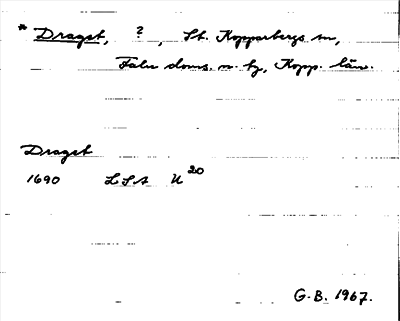 * Dragst, ?, St. Kopparbergs sn,
Falu doms. n. by, Kopp. län.
Dragst
1690 LSA U 20
G.B. 1967.